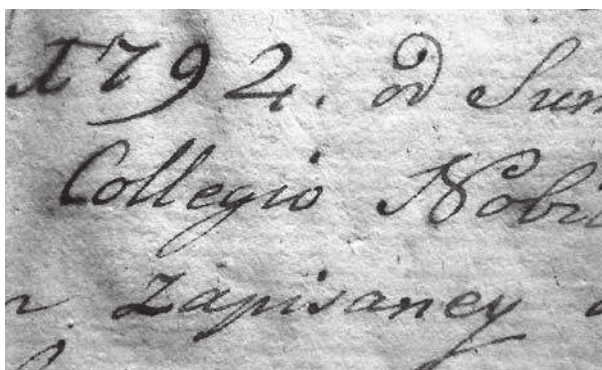 1792. od Sum
Collegio Nobil
Zapisaney